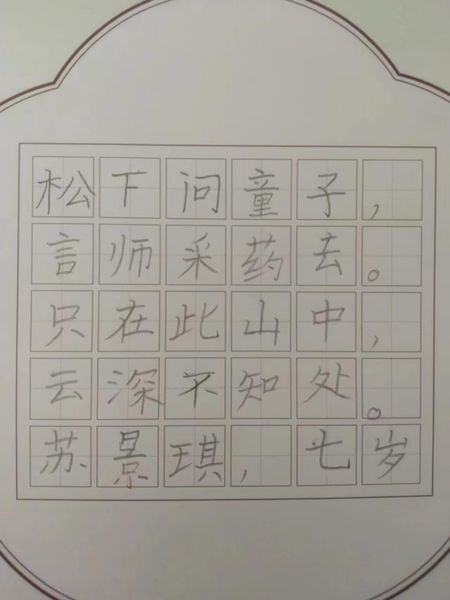 松下问童子，
言师采药去。
只在此山中，
云深不知处。
苏景琪，七岁